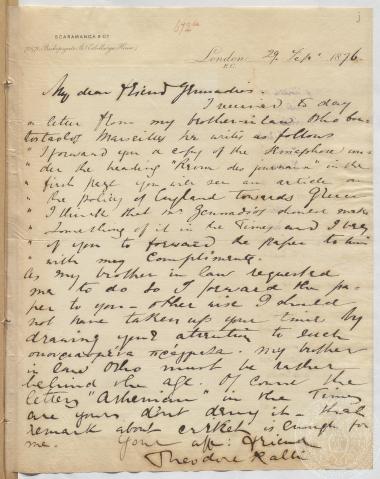 SCARAMANGA & Co
London 29 Sept 1876
E.C.
My dear Friend Gennadios.
I received to day
a letter from my brother in law Otho
of Marseilles he writes as follows
"I forward you a copy of the Semaphore un-
"der the heading "Revue des journaux" in the
first page you will see an article on
"the policy of England towards Greece
"I think that Mr Gennadios
"something of it in the Times and I beg
"of you to forward the paper to him
"with my compliments.
As my brother in law requested
me to do so I forward the pa-
per to you - otherwise I should
not have taken up your time by
drawing your attention to such
my brother
in law Otho must be rather
behind the age. Of course the
letters "Athenian" in the Times
are yours dont deny it - that
remark about cricket is enough for
me.
Your aff: friend
Theodore Ralli